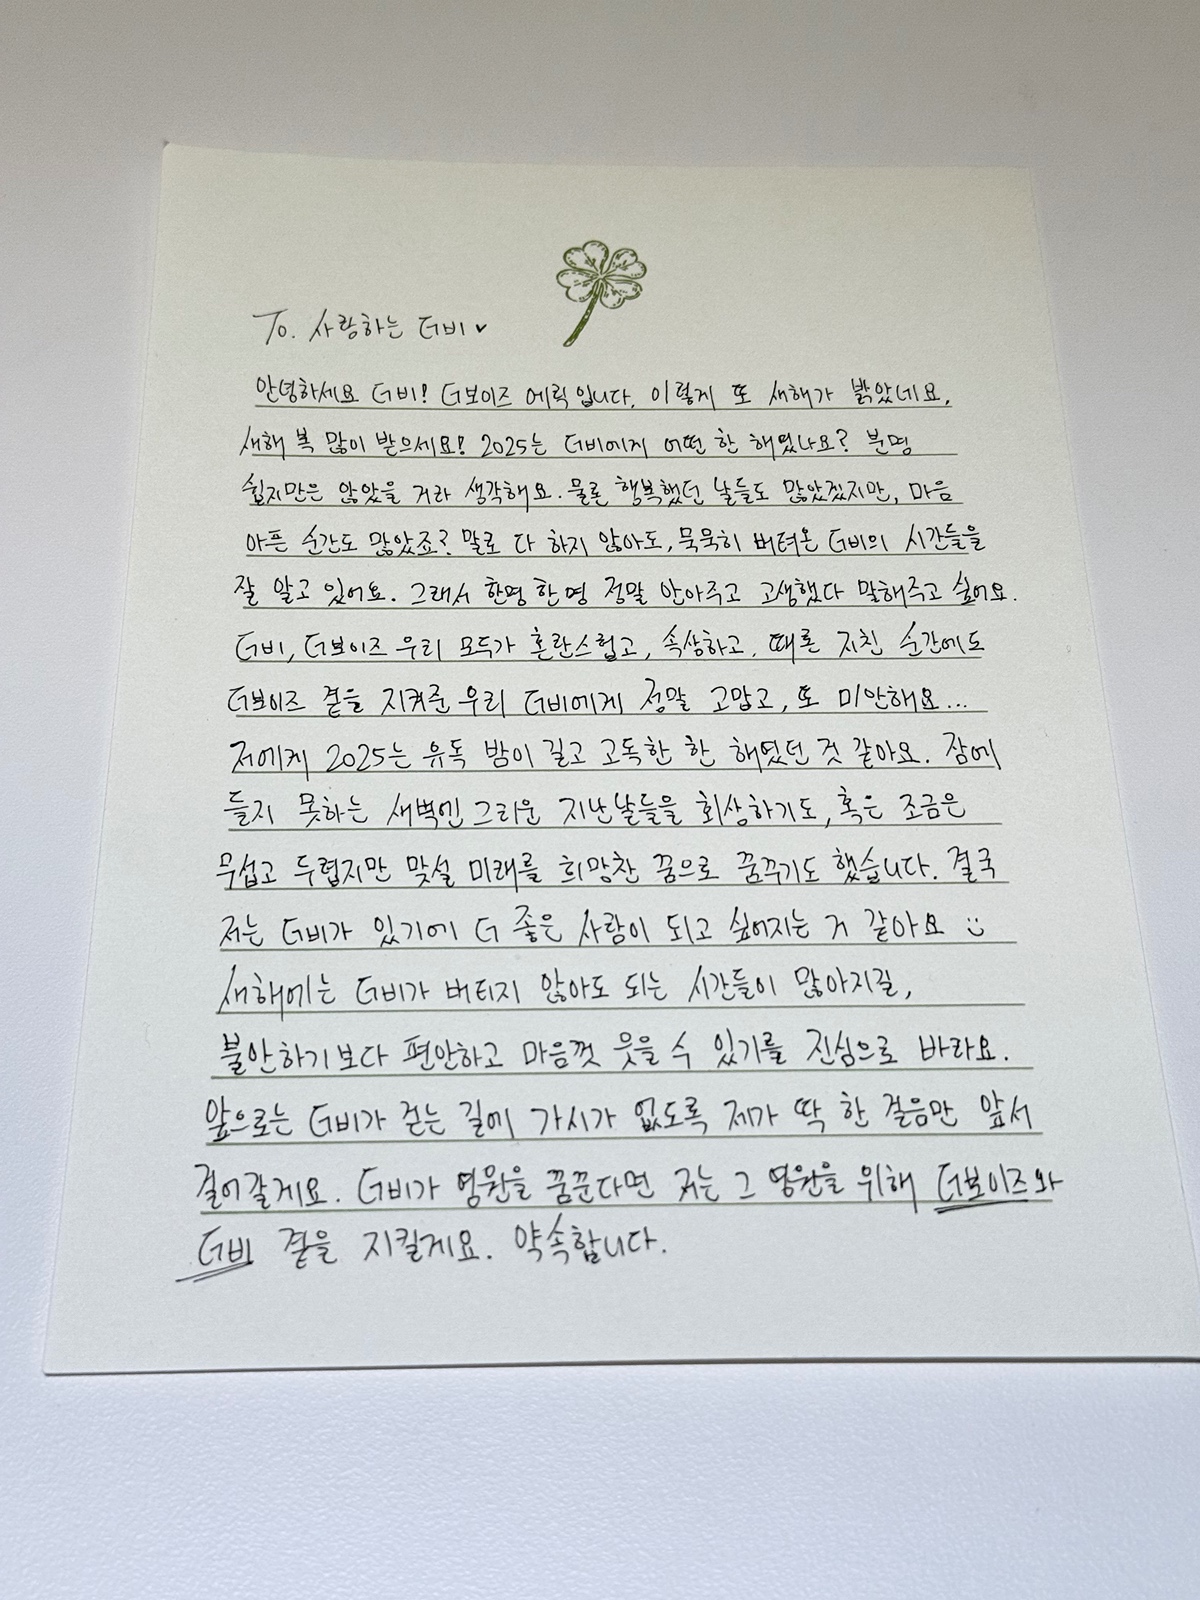 To. 사랑하는 더비 ♥
안녕하세요 더비! 더보이즈 에릭입니다. 이렇게 또 새해가 밝았네요.
새해 복 많이 받으세요! 2025는 더비에게 어떤 한 해였나요? 분명
쉽지만은 않았을 거라 생각해요. 물론 행복했던 날들도 많았겠지만, 마음
아픈 순간도 많았죠? 말로 다 하지 않아도, 묵묵히 버텨온 더비의 시간들을
잘 알고 있어요. 그래서 한명 한명 정말 안아주고 고생했다 말해주고 싶어요.
더비, 더보이즈 우리 모두가 혼란스럽고, 속상하고, 때론 지친 순간에도
더보이즈 곁을 지켜준 우리 더비에게 정말 고맙고, 또 미안해요...
저에게 2025는 유독 밤이 길고 고독한 한 해였던 것 같아요. 잠에
들지 못하는 새벽엔 그리운 지난날들을 회상하기도, 혹은 조금은
무섭고 두렵지만 맞설 미래를 희망찬 꿈으로 꿈꾸기도 했습니다. 결국
저는 더비가 있기에 더 좋은 사람이 되고 싶어지는 거 같아요 :)
새해에는 더비가 버티지 않아도 되는 시간들이 많아지길,
불안하기보다 편안하고 마음껏 웃을 수 있기를 진심으로 바라요.
앞으로는 더비가 걷는 길에 가시가 없도록 제가 딱 한 걸음만 앞서
걸어갈게요. 더비가 영원을 꿈꾼다면 저는 그 영원을 위해 더보이즈와
더비 곁을 지킬게요. 약속합니다.